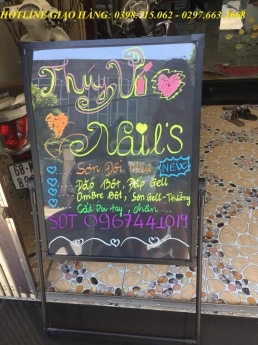 HOTLINE GIAO HÀNG: 0398.215.062 - 0297.663.2668
Thuy Vi
Nail'S
Sơn Đổi Màu NEW
Đắp Bột, Đắp Gell
OmBre Bột, Sơn Gell - Thường
Cắt Da tay, chân ...
SĐT 0967441019